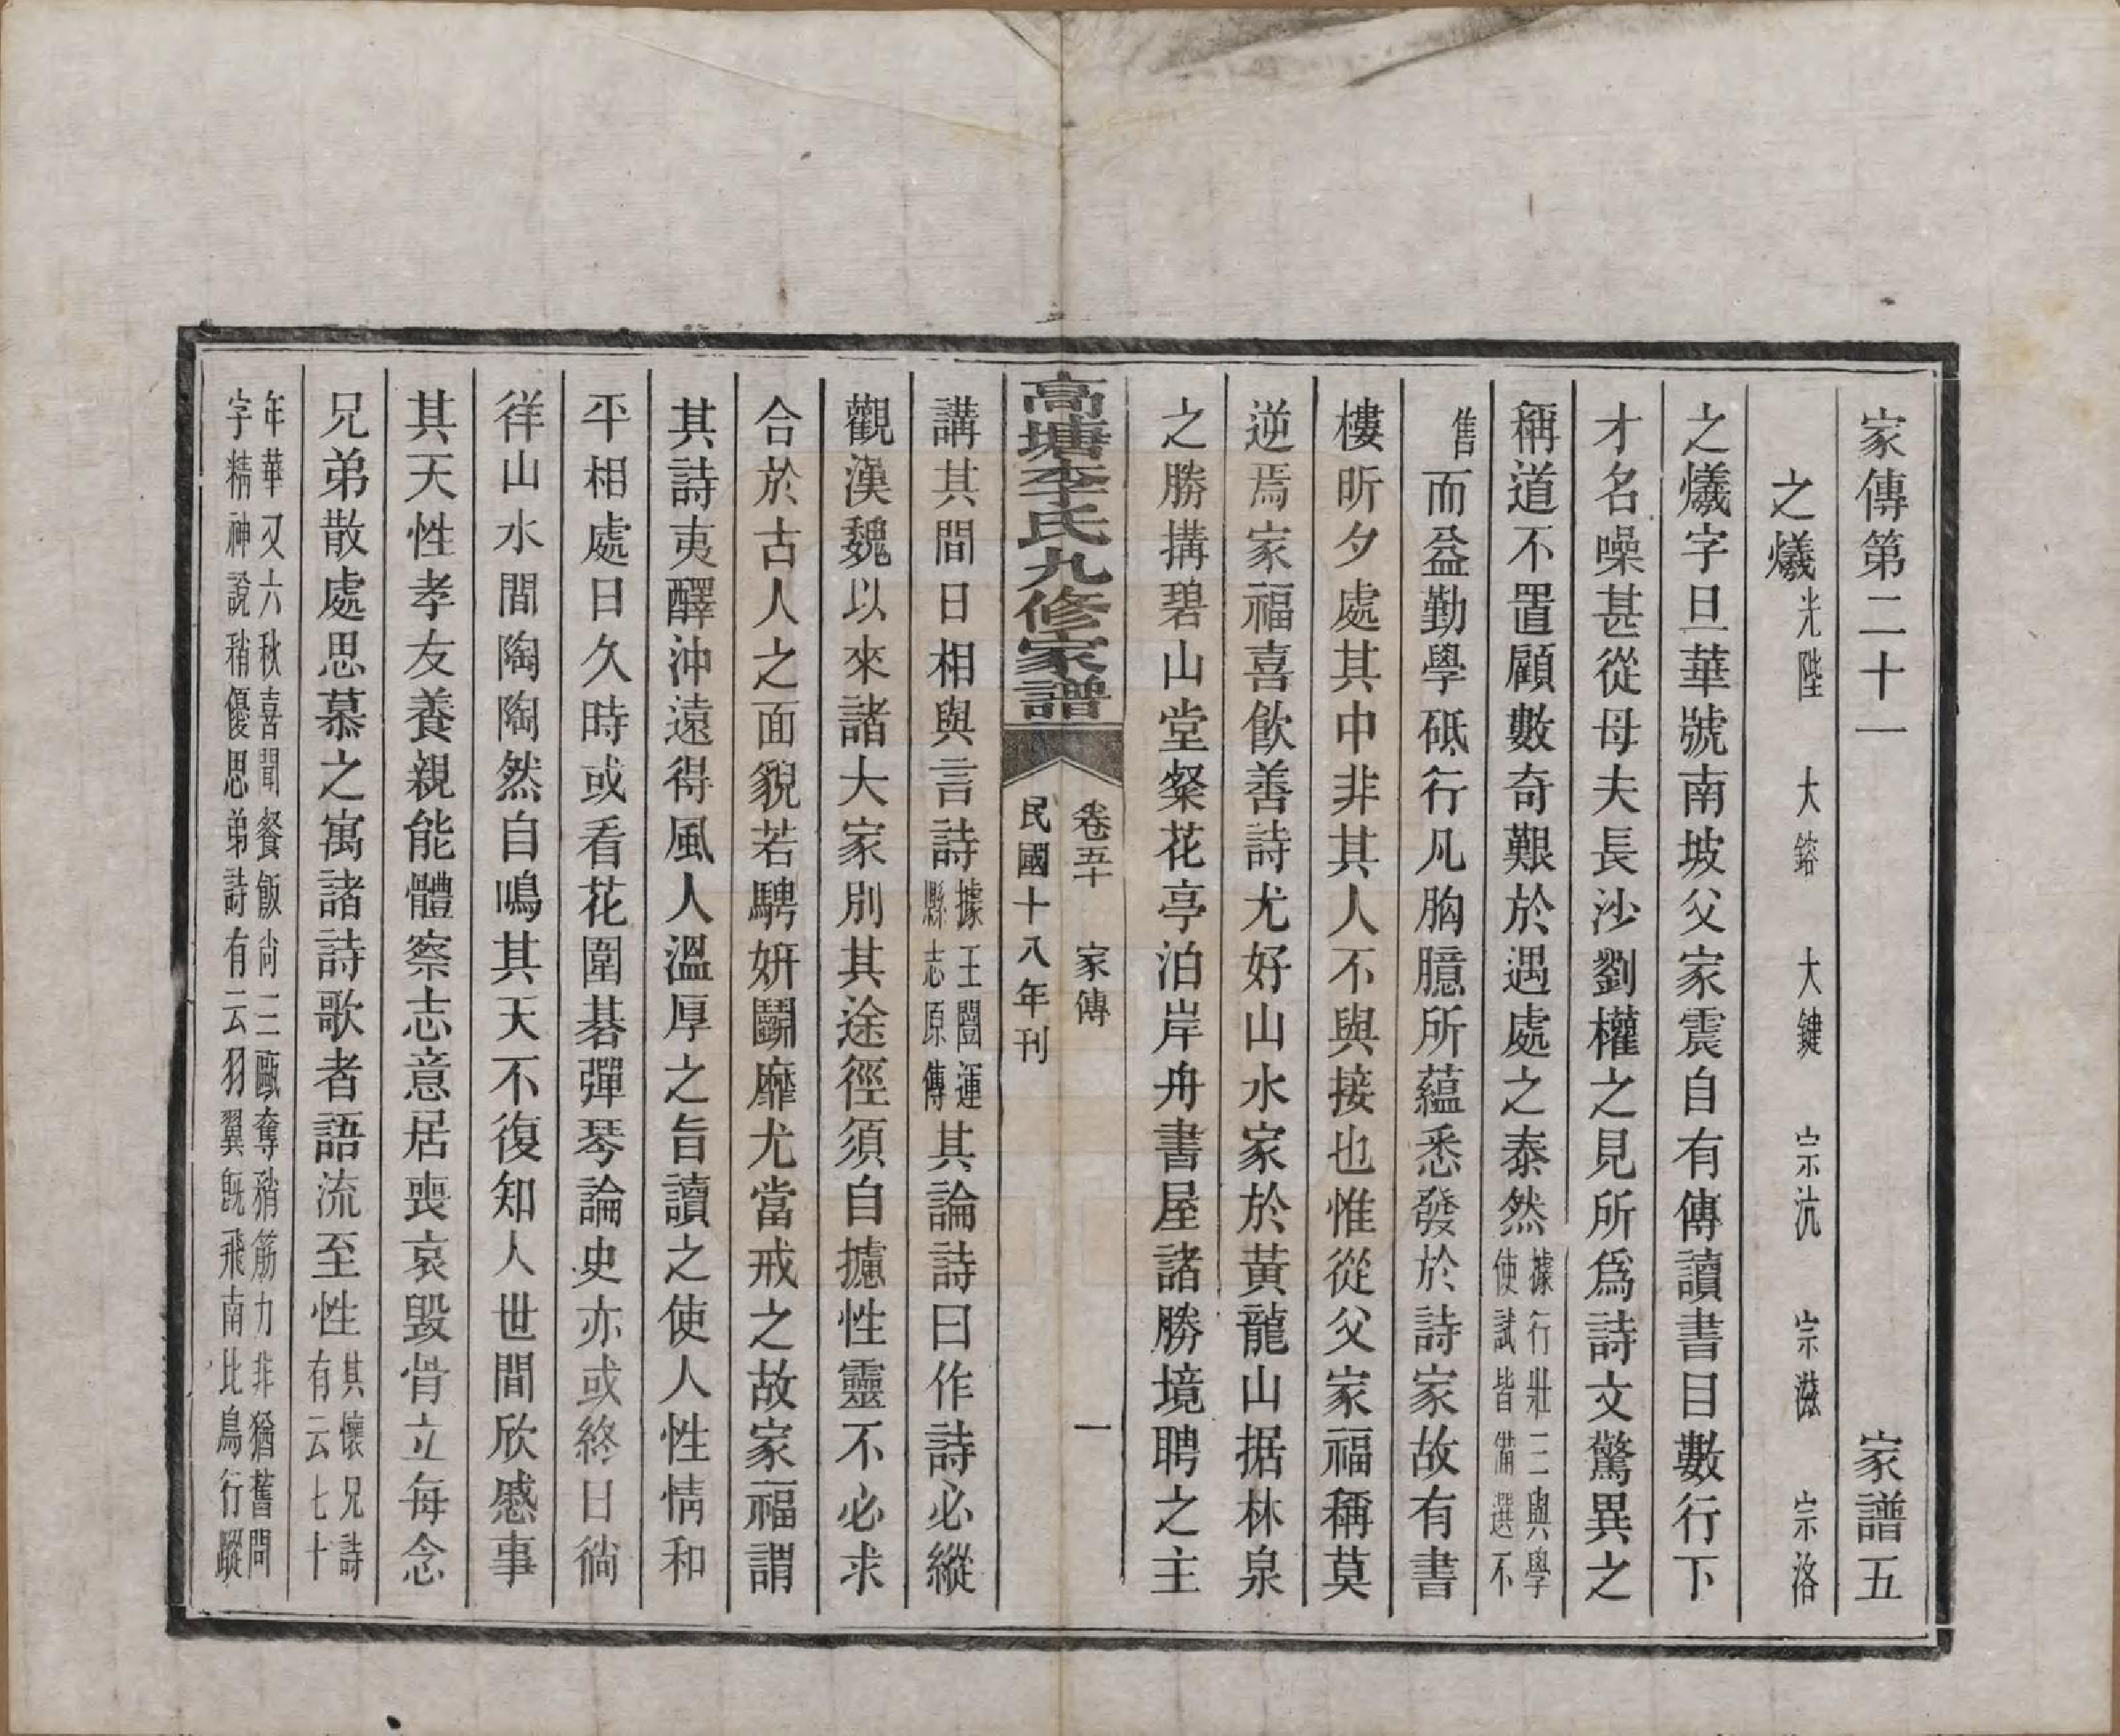 家傳第二十一　家譜五
之爔光陛　大鎔　大鍵　宗沆　宗滋　宗洛
之爔字旦華號南坡父家震自有傳讀書目數行下
才名噪甚從母夫長沙劉權之見所爲詩文驚異之
稱道不置顧數奇艱於遇處之泰然據行壯三與學使試皆備選不
售而益勤學砥行凡胸臆所蘊悉發於詩家故有書
樓昕夕處其中非其人不與接也惟從父家福稱莫
逆焉家福喜飲善詩尤好山水家於黃龍山据林泉
之勝搆碧山堂粲花亭泊岸舟書屋諸勝境聘之主
高塘李氏九修家譜
卷五十　家傳　一
民國十八年刊
講其間日相與言詩據王闓運縣志原傳其論詩曰作詩必縱
觀漢魏以來諸大家別其途徑須自攄性靈不必求
合於古人之面貌若騁妍鬭靡尤當戒之故家福謂
其詩夷醳沖遠得風人溫厚之旨讀之使人性情和
平相處日久時或看花圍碁彈琴論史亦或終日徜
徉山水間陶陶然自鳴其天不復知人世間欣慼事
其天性孝友養親能體察志意居喪哀毀骨立每念
兄弟散處思慕之寓諸詩歌者語流至性其懷兄詩有云七十
年華又六秋喜聞餐飯尚三甌奪稍筋力非猶舊問
字精神說稍優思弟詩有云羽翼旣飛南比鳥行蹤